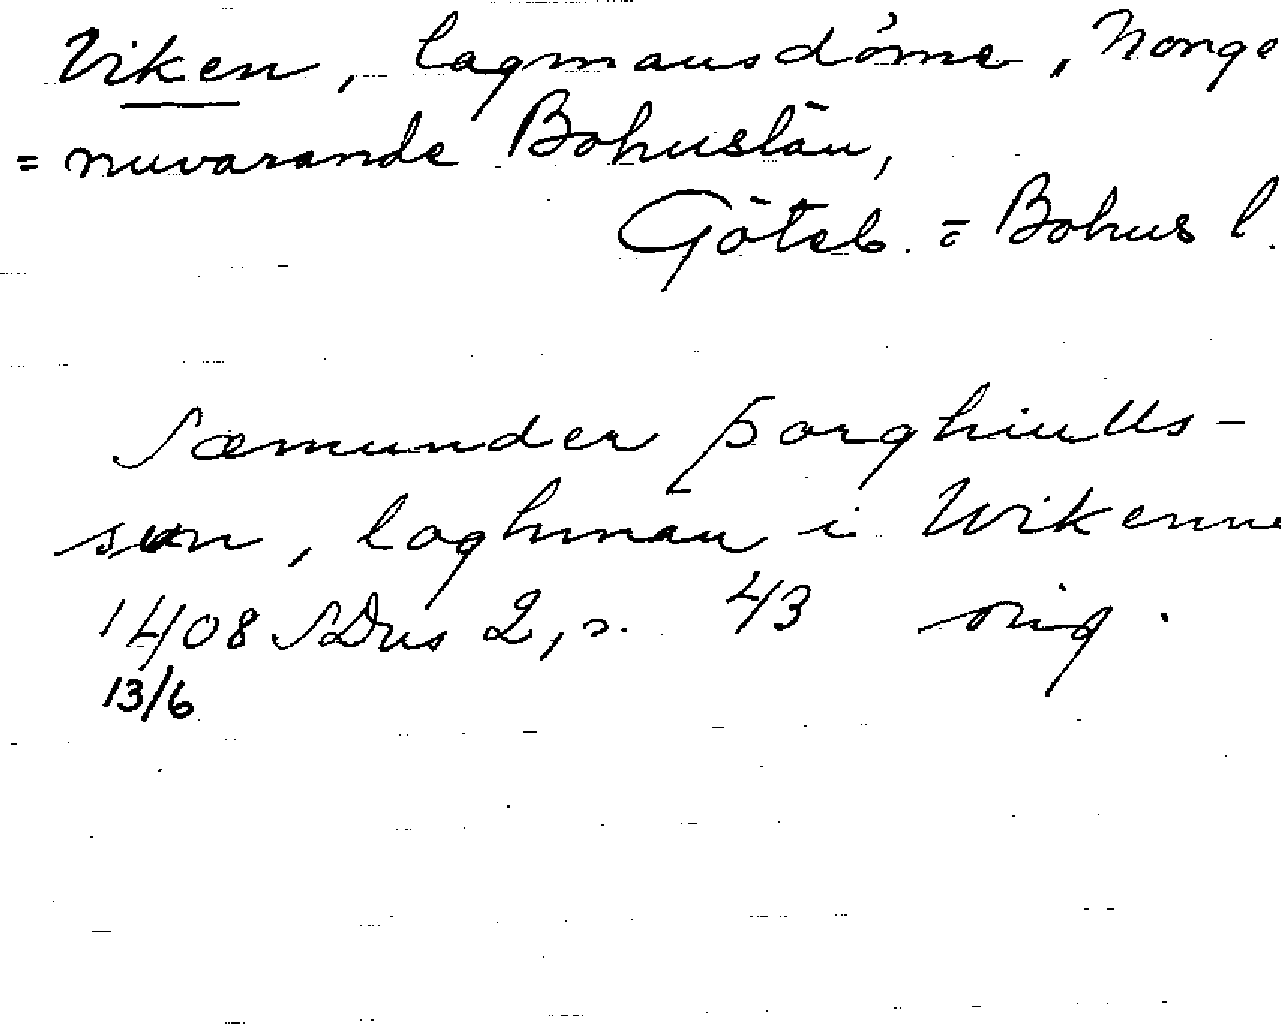 Viken, lagmansdöme, Norge
= nuvarande Bohuslän,
Göteb. = Bohus l.
Sæmunder þorghiulls-
son, laghman i Wikenne
1408 SDns 2, s. 43 orig.
13/6